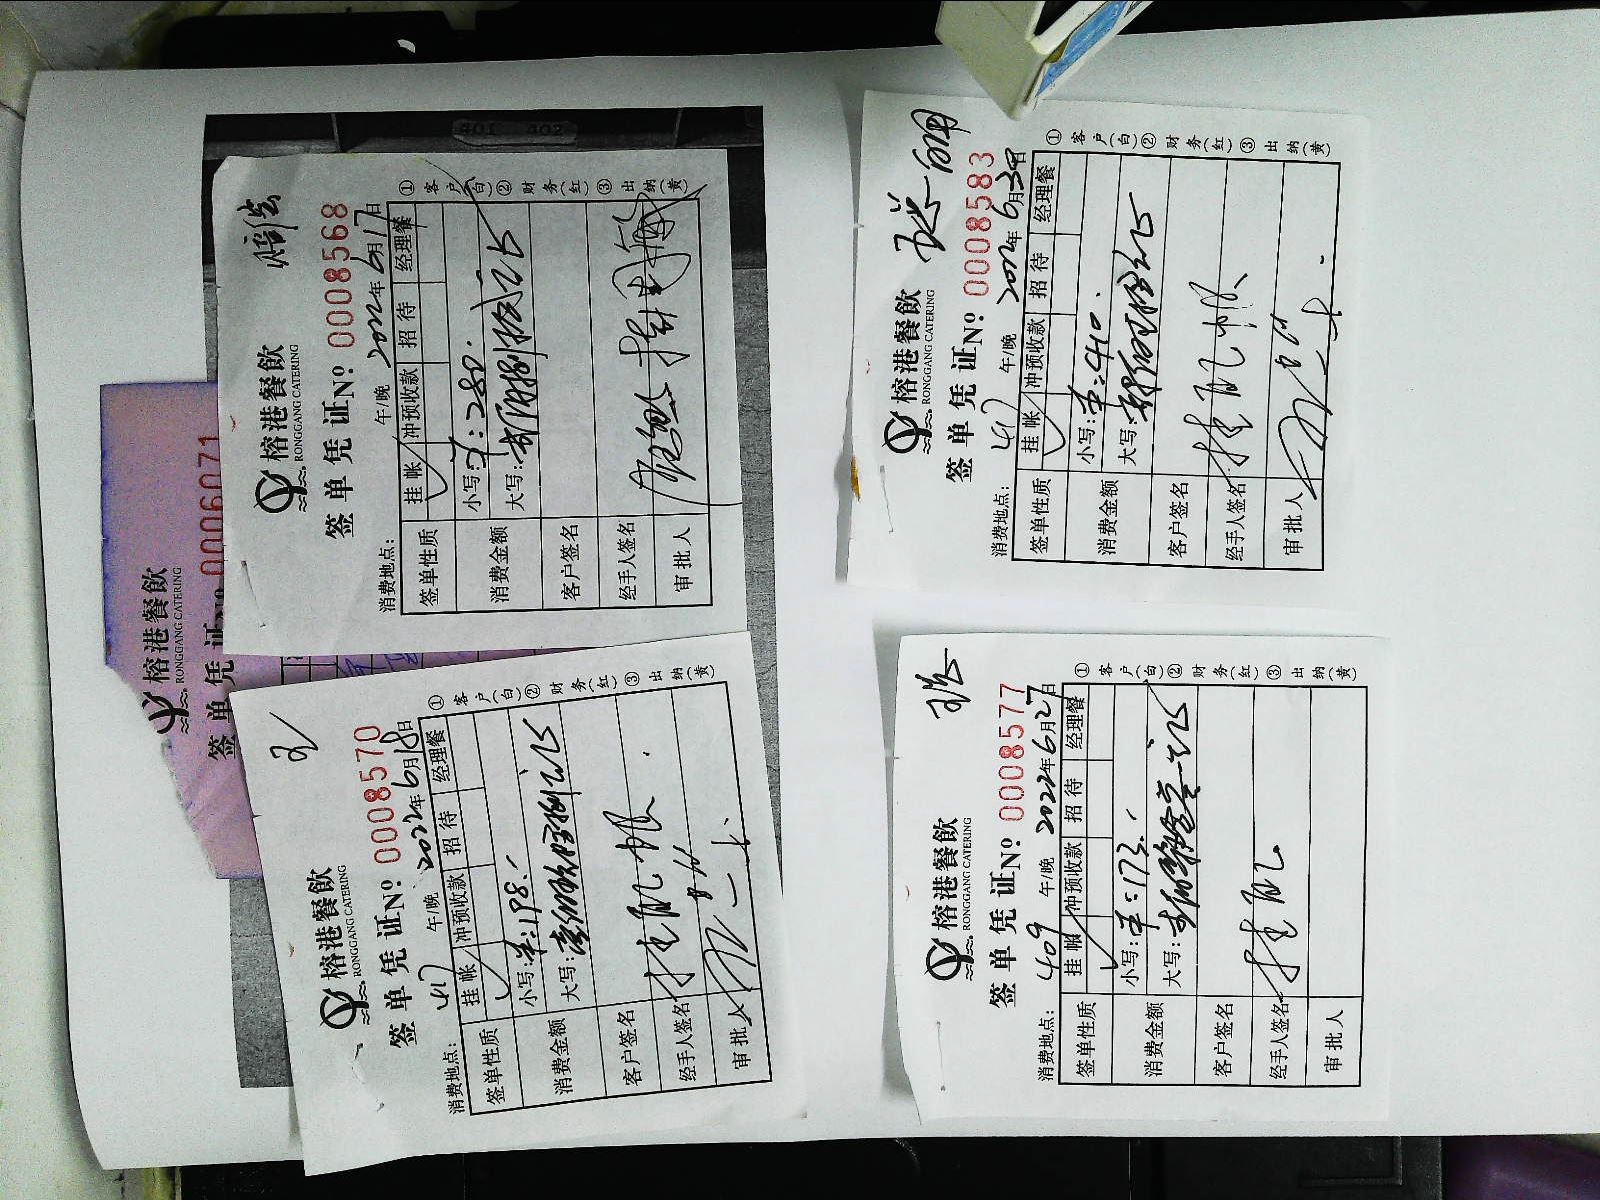 401 402
榕港餐飲
RONGGANG CATERING
签单凭证 Nº 0006071
榕港餐飲
RONGGANG CATERING
签单凭证 Nº 0008568
消费地点： 午/晚 2022年6月17日
签单性质 挂帐 冲预收款 招待 经理餐
消费金额 小写：羊：280.
大写：
客户签名
经手人签名
审批人
①客户(白)②财务(红)③出纳(黄)
王
榕港餐飲
RONGGANG CATERING
签单凭证 Nº 0008570
消费地点： 417 午/晚 2022年6月18日
签单性质 挂帐 冲预收款 招待 经理餐
消费金额 小写：羊：198.
大写：
客户签名
经手人签名
审批人
①客户(白)②财务(红)③出纳(黄)
榕港餐飲
RONGGANG CATERING
签单凭证 Nº 0008583
消费地点： 417 午/晚 2022年6月30日
签单性质 挂帐 冲预收款 招待 经理餐
消费金额 小写：羊：410.
大写：
客户签名
经手人签名
审批人
①客户(白)②财务(红)③出纳(黄)
榕港餐飲
RONGGANG CATERING
签单凭证 Nº 0008577
消费地点： 409 午/晚 2022年6月27日
签单性质 挂帐 冲预收款 招待 经理餐
消费金额 小写：羊：173.
大写：
客户签名
经手人签名
审批人
①客户(白)②财务(红)③出纳(黄)